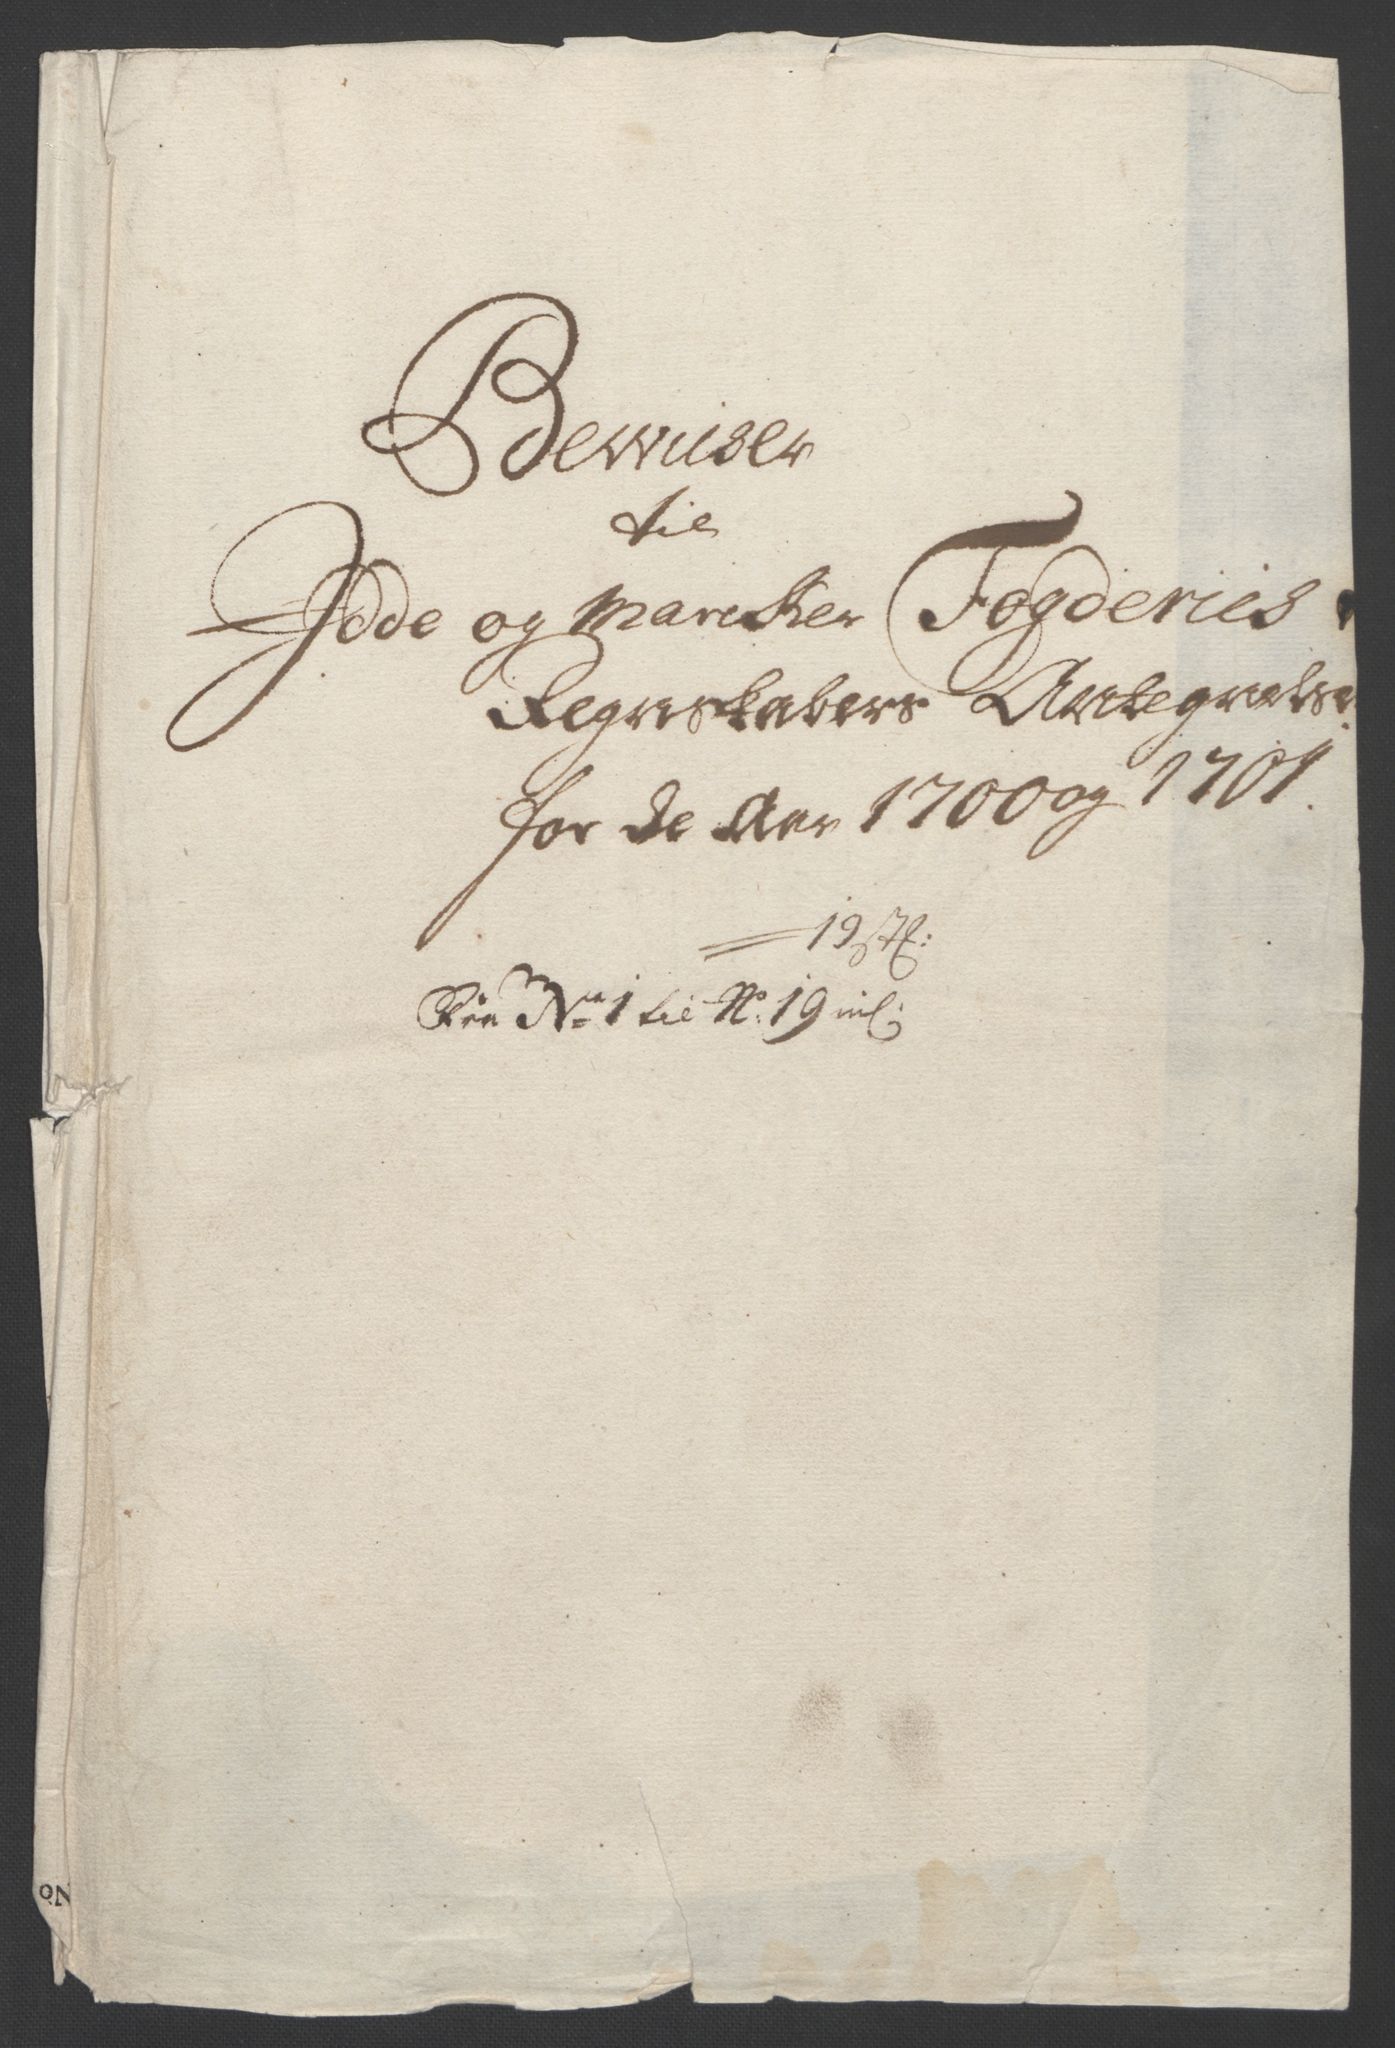 Bewiiser
til
Jdde og Marcker Fogderies
Regneskabers Antegnelser
for de Aar 1700 og 1701.
19 st:
Fra No 1 til No: 19 incl:
No